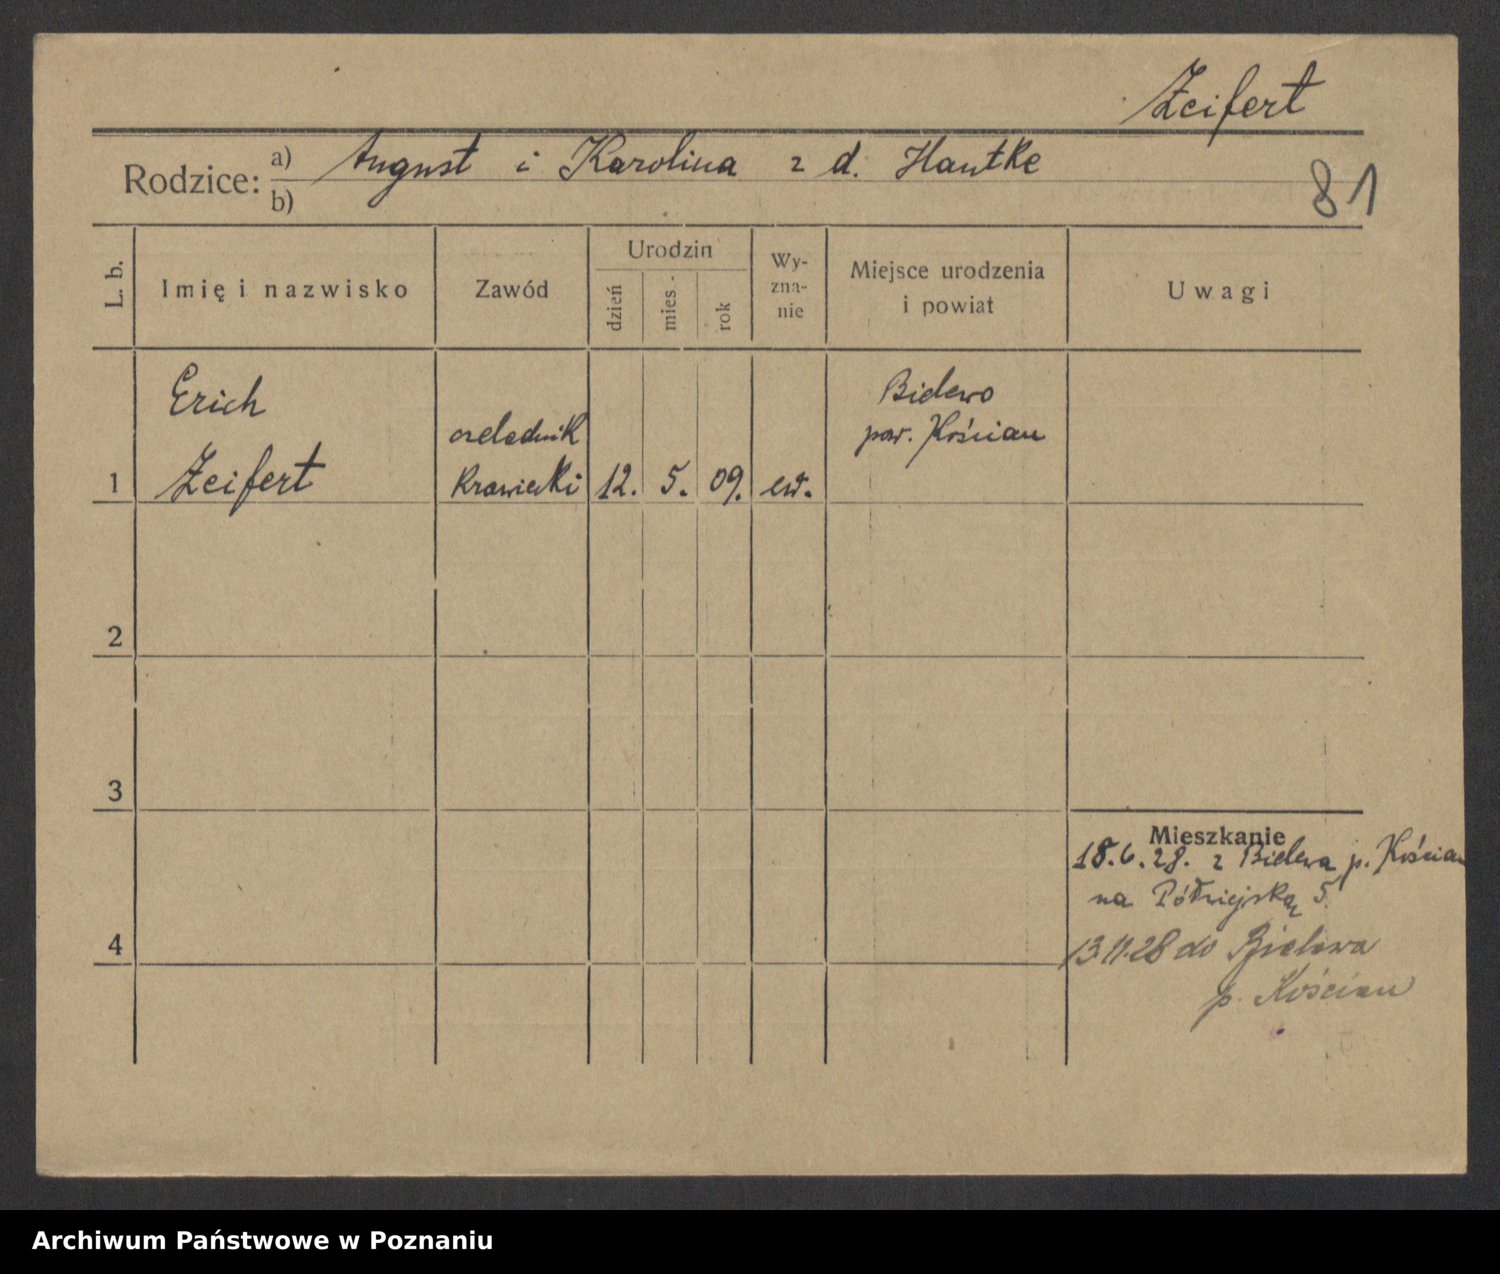 Zeifert
Rodzice: a) August i Karolina z d. Hantke
b)
81
L. b.
Imię i nazwisko
Zawód
Urodzin
dzień
mies.
rok
Wy-
zna-
nie
Miejsce urodzenia
i powiat
Uwagi
1
Erich
Zeifert
czeladnik
krawiecki
12. 5. 09. ew.
Bielewo
pow. Kościan
2
3
4
Mieszkanie
18.6.28. z Bielewa p. Kościan
na Półwiejską 5.
13 11.28 do Bielewa
p. Kościan
Archiwum Państwowe w Poznaniu